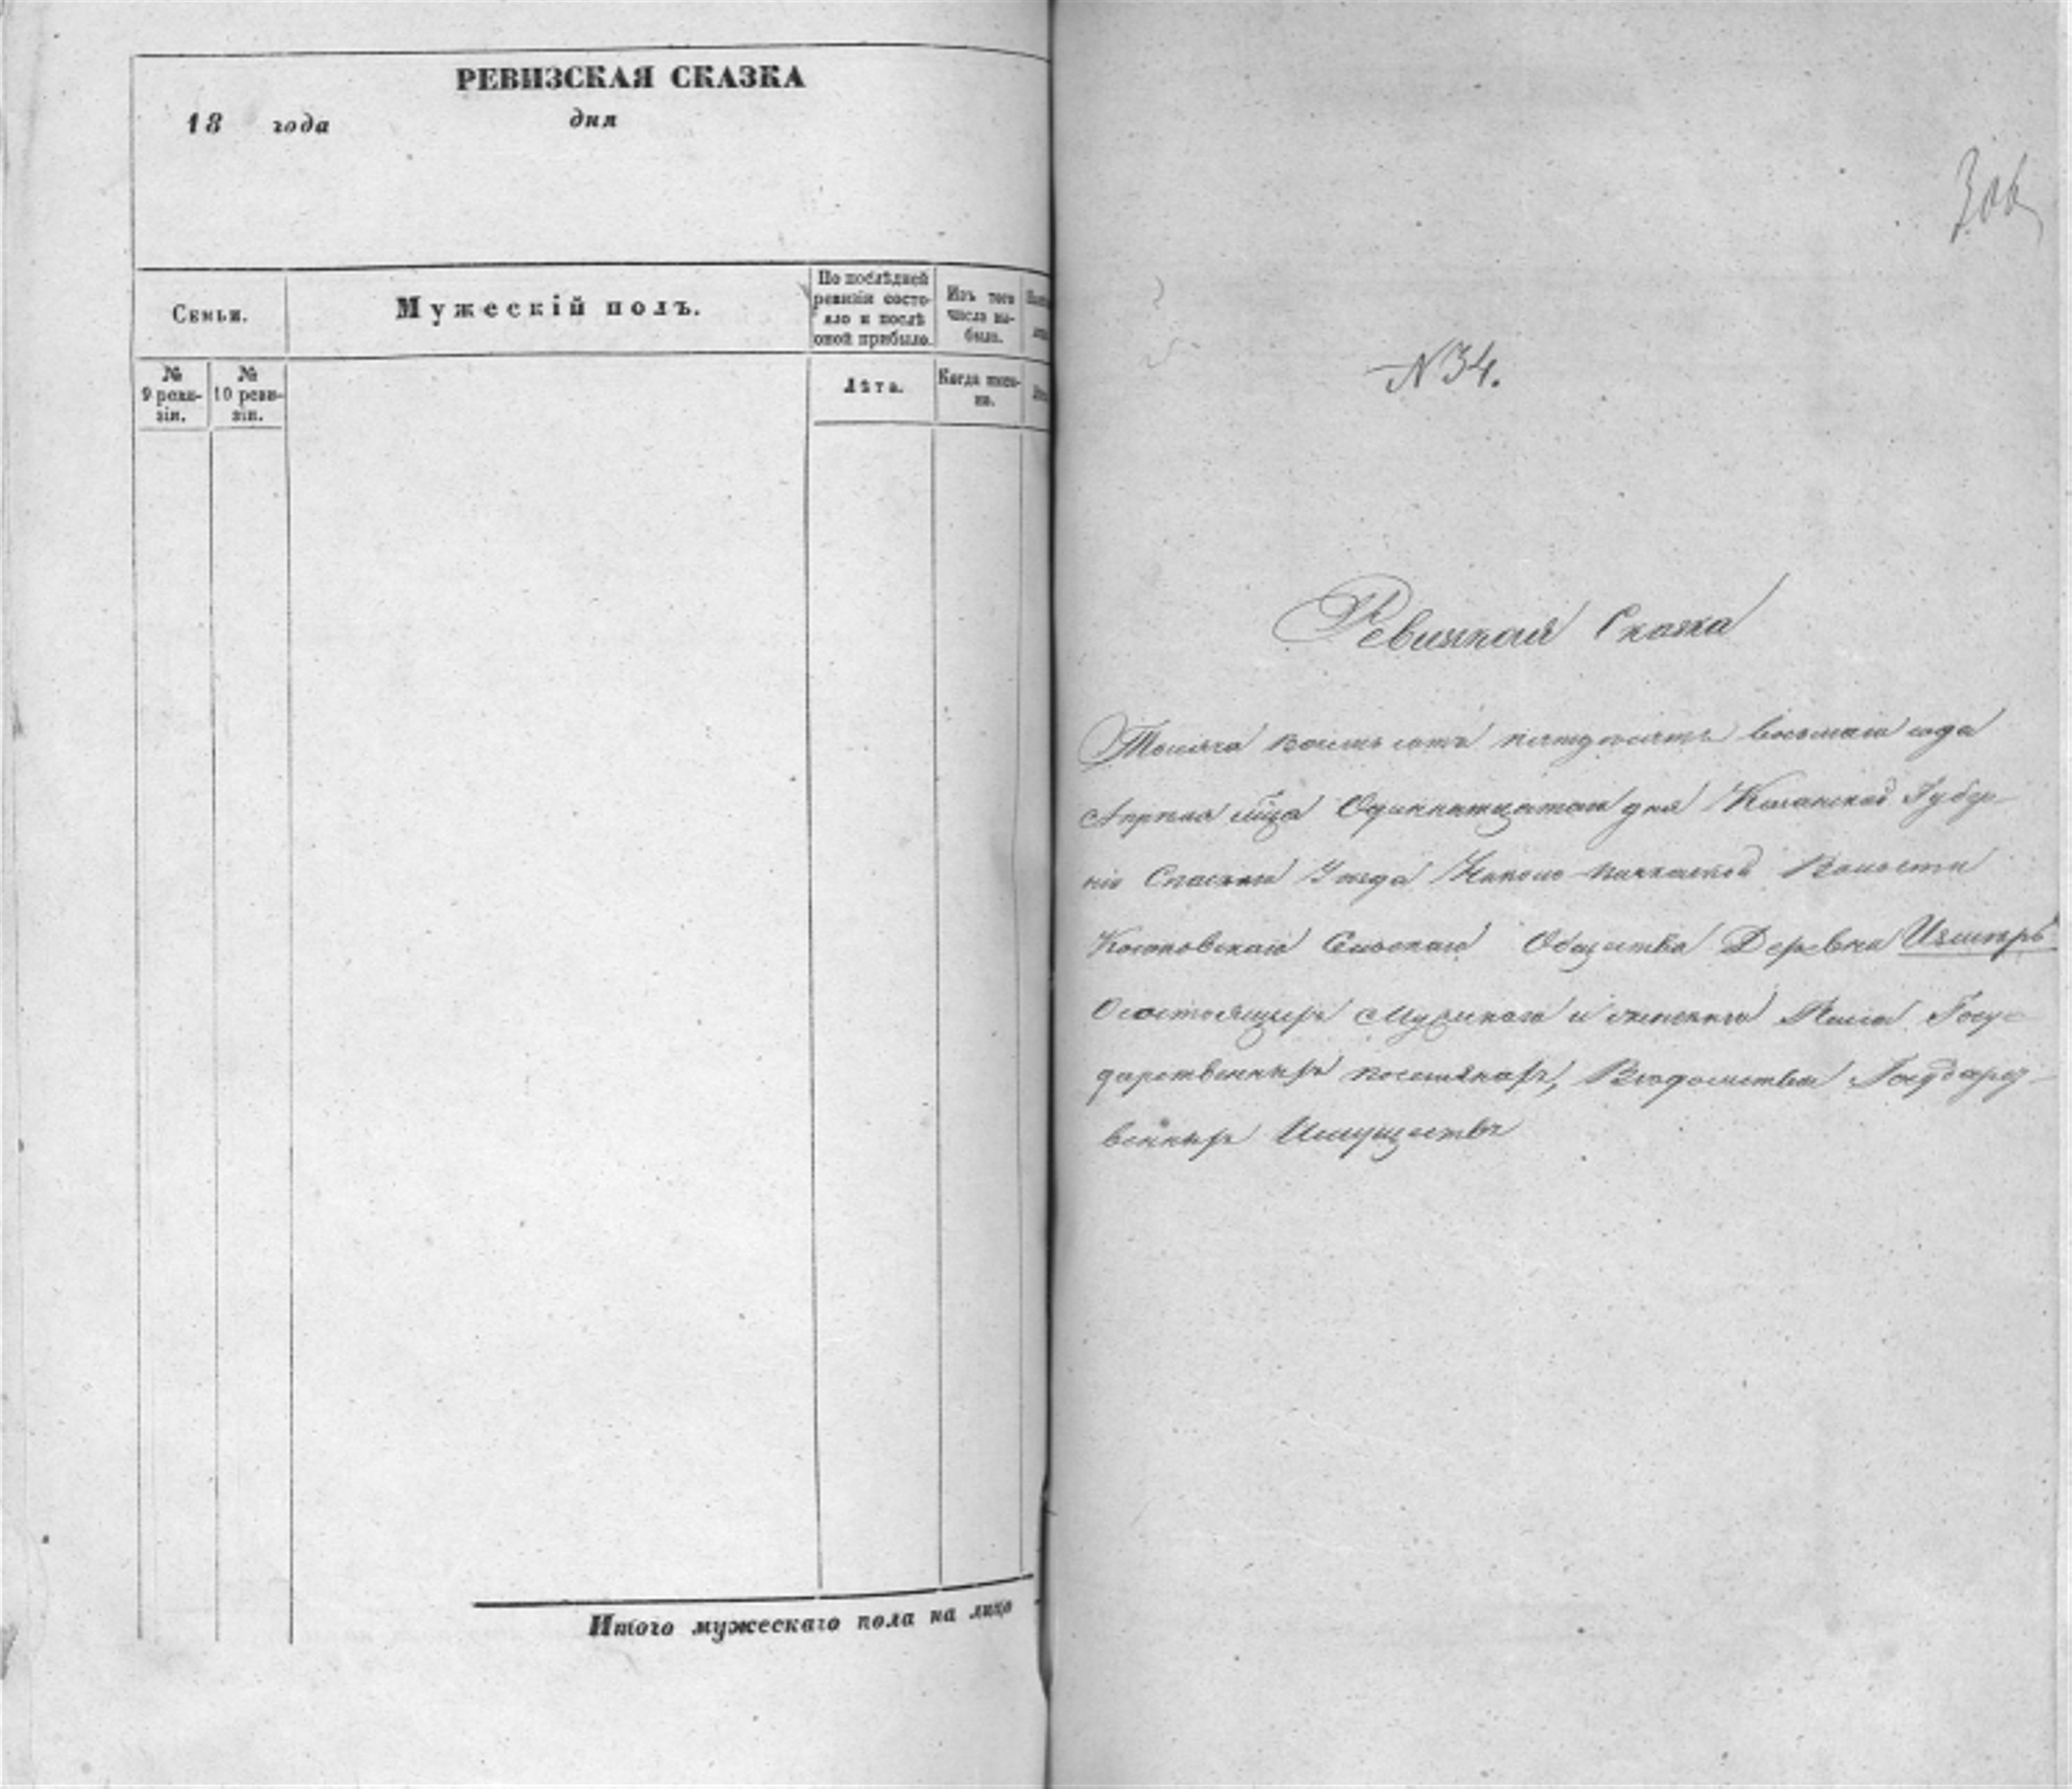 РЕВИЗСКАЯ СКАЗКА
18 года дня
Семьи.
Мужескій полъ.
По послѣдней ревизіи состояло и послѣ оной прибыло.
Изъ того числа выбыло.
№ 9 ревизіи.
№ 10 ревизіи.
Лѣта.
Когда именно.
Итого мужескаго пола на лицо
306
№ 34.
Ревизская Сказка
Тысяча восемь сотъ пятдесятъ восьмаго года
Апрѣля м-ца Одиннатцатаго дня Казанской Губер-
ніи Спаскаго Уезда Волости
Сельскаго Общества Деревни Измеръ
О состоящихъ Мужскаго и женскаго Пола Госу-
дарственныхъ поселянахъ, Вѣдомства Государст-
венныхъ Имуществъ